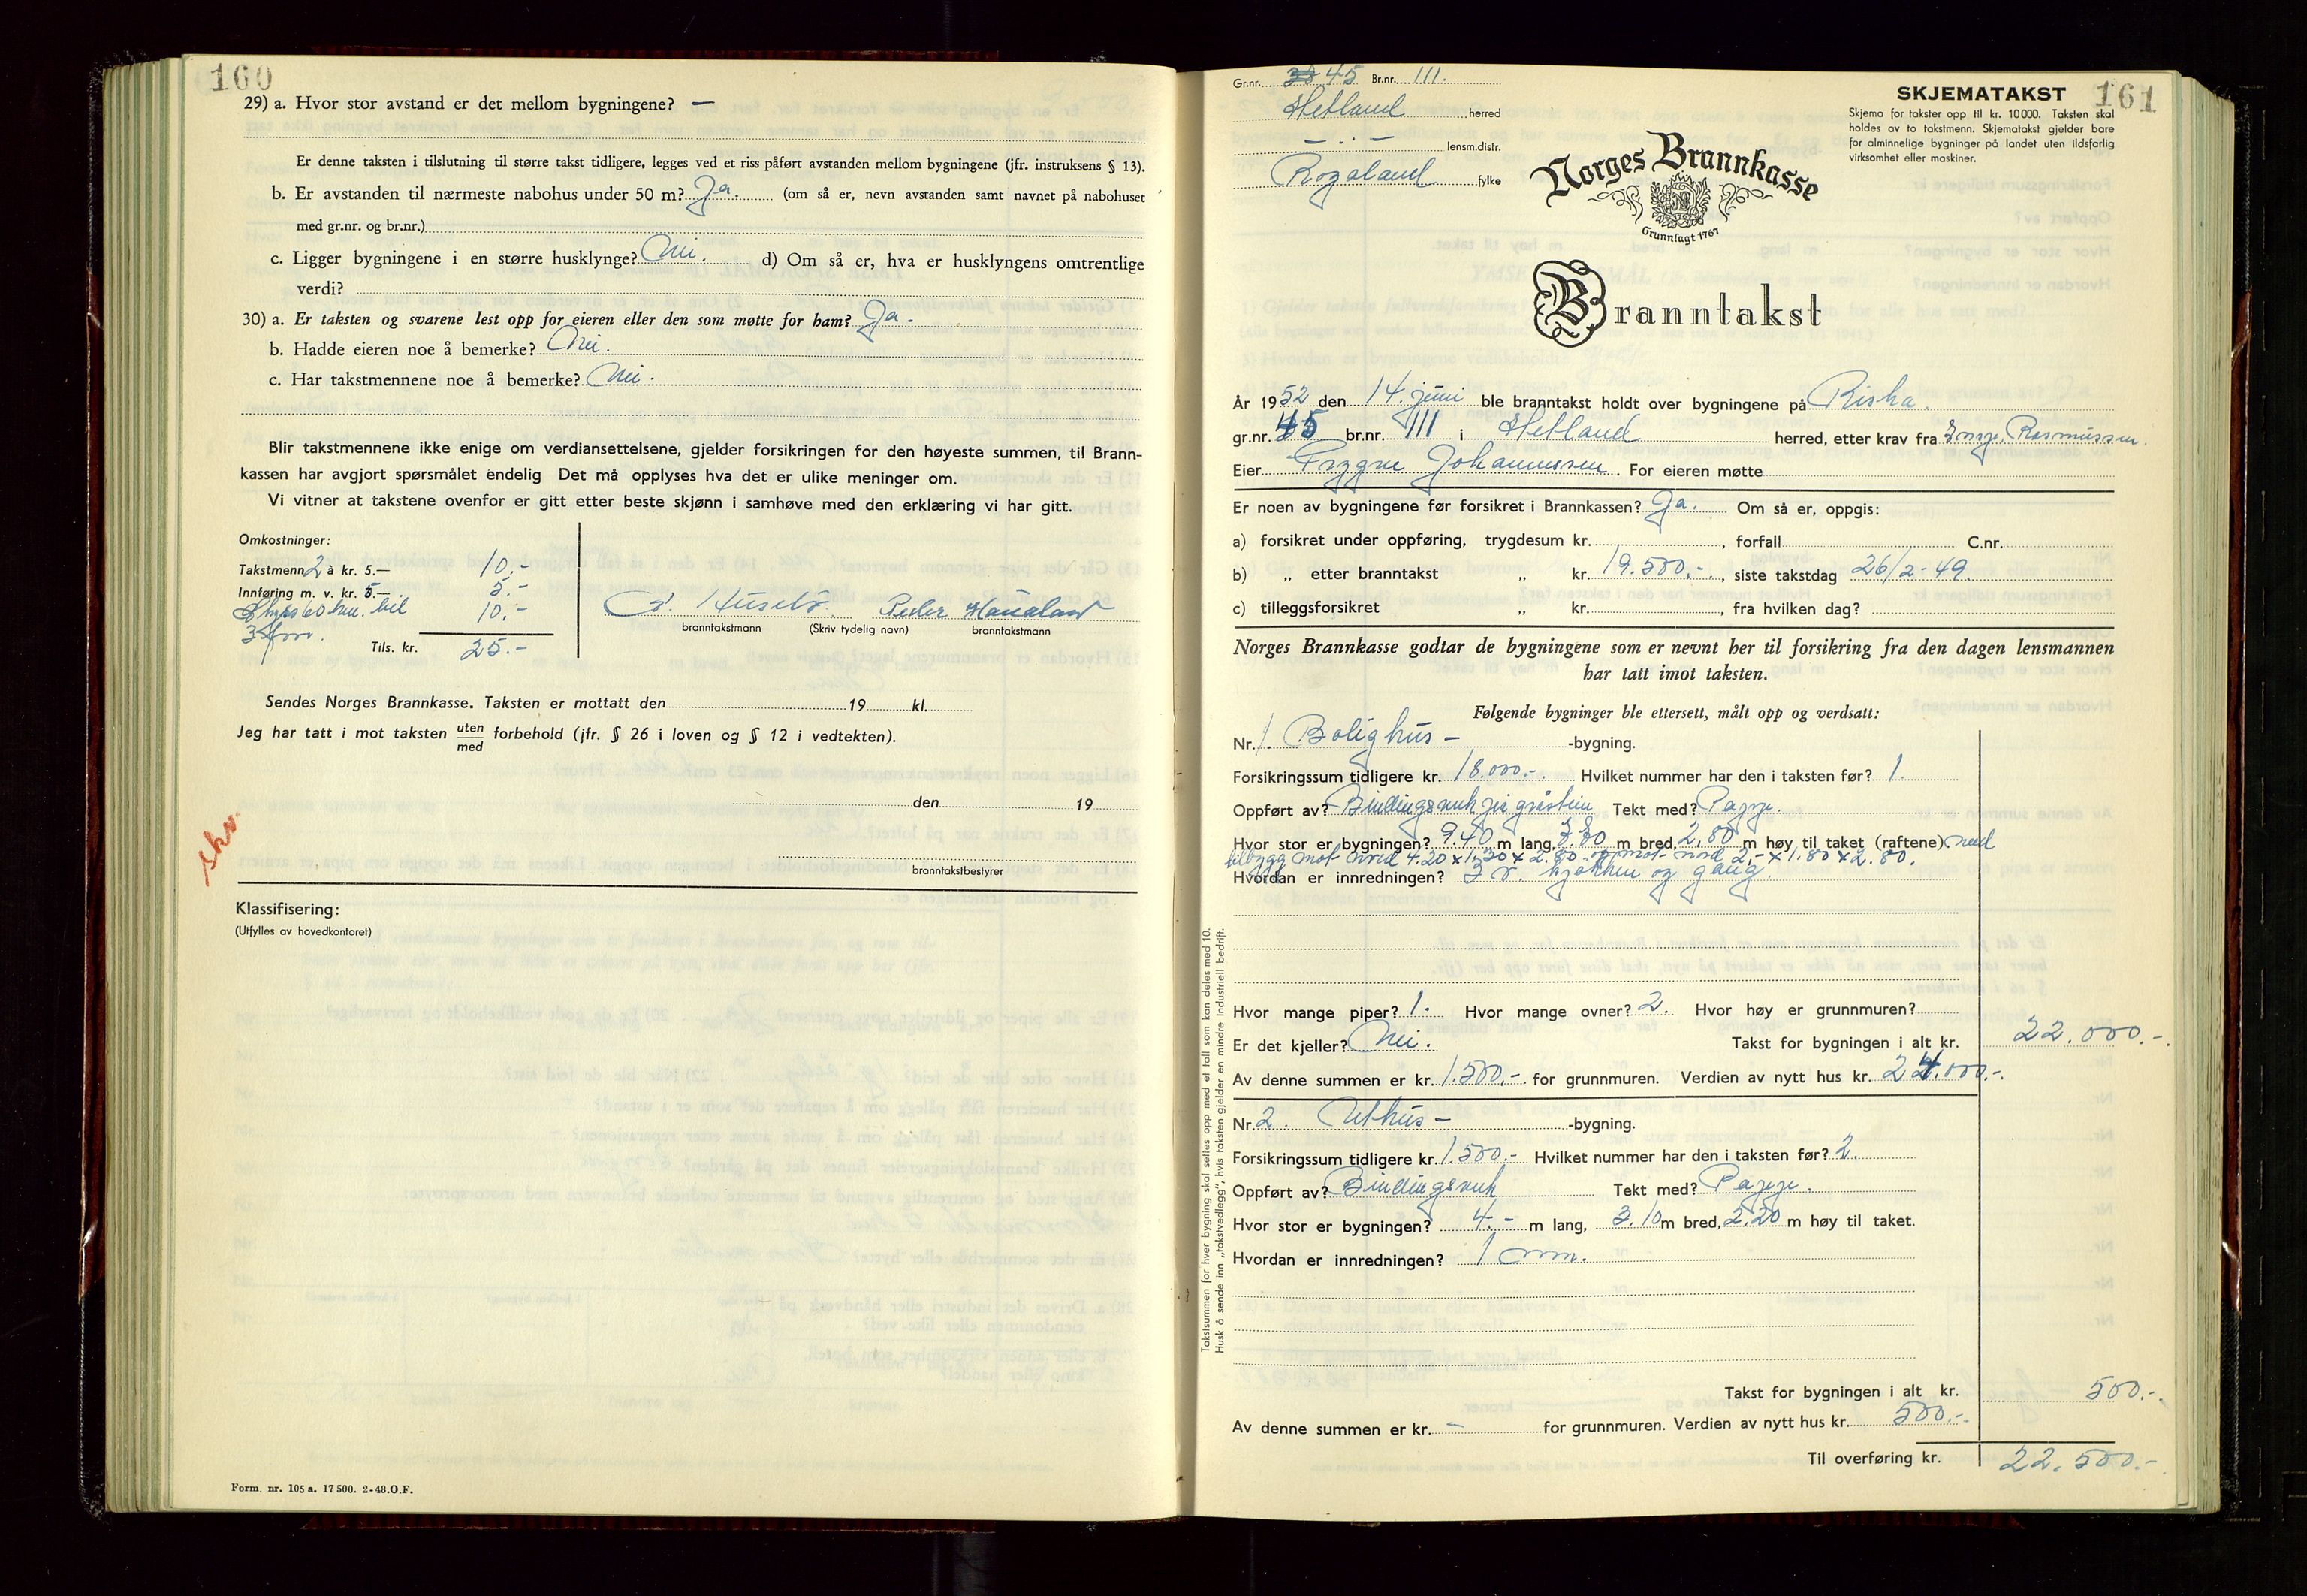 160
29) a. Hvor stor avstand er det mellom bygningene? —
Er denne taksten i tilslutning til større takst tidligere, legges ved et riss påført avstanden mellom bygningene (jfr. instruksens § 13).
b. Er avstanden til nærmeste nabohus under 50 m? Ja. (om så er, nevn avstanden samt navnet på nabohuset
med gr.nr. og br.nr.)
c. Ligger bygningene i en større husklynge? Nei. d) Om så er, hva er husklyngens omtrentlige
verdi?
30) a. Er taksten og svarene lest opp for eieren eller den som møtte for ham? Ja.
b. Hadde eieren noe å bemerke? Nei.
c. Har takstmennene noe å bemerke? Nei.
Blir takstmennene ikke enige om verdiansettelsene, gjelder forsikringen for den høyeste summen, til Brann-
kassen har avgjort spørsmålet endelig Det må opplyses hva det er ulike meninger om.
Vi vitner at takstene ovenfor er gitt etter beste skjønn i samhøve med den erklæring vi har gitt.
Omkostninger:
Takstmenn 2 à kr. 5.— 10.-
Innføring m. v. kr. 5.— 5.-
bil 10.-
Tils. kr. 25.-
Peder Haualand
branntakstmann (Skriv tydelig navn) branntakstmann
Sendes Norges Brannkasse. Taksten er mottatt den 19 kl.
Jeg har tatt i mot taksten uten/med forbehold (jfr. § 26 i loven og § 12 i vedtekten).
den 19
skv.
branntakstbestyrer
Klassifisering:
(Utfylles av hovedkontoret)
Form. nr. 105 a. 17 500. 2-48. O.F.
161
Gr.nr. 45 Br.nr. 111.
Hetland herred
— . — lensm.distr.
Rogaland fylke
SKJEMATAKST
Skjema for takster opp til kr. 10 000. Taksten skal
holdes av to takstmenn. Skjematakst gjelder bare
for alminnelige bygninger på landet uten ildsfarlig
virksomhet eller maskiner.
Norges Brannkasse
Grunnlagt 1767
Branntakst
År 1952 den 14. juni ble branntakst holdt over bygningene på Riska.
gr.nr. 45 br.nr. 111 i Hetland herred, etter krav fra Rasmussen.
Eier Trygve Johannessen. For eieren møtte
Er noen av bygningene før forsikret i Brannkassen? Ja. Om så er, oppgis:
a) forsikret under oppføring, trygdesum kr. , forfall C.nr.
b) „ etter branntakst „ kr. 19.500.- , siste takstdag 26/2-49.
c) tilleggsforsikret „ kr. , fra hvilken dag?
Norges Brannkasse godtar de bygningene som er nevnt her til forsikring fra den dagen lensmannen
har tatt imot taksten.
Følgende bygninger ble ettersett, målt opp og verdsatt:
Nr. 1. Bolighus - -bygning.
Forsikringssum tidligere kr. 18.000.- Hvilket nummer har den i taksten før? 1.
Oppført av? Bindingsverk på gråstein Tekt med? Papp.
Hvor stor er bygningen? 9.40 m lang, m bred, 2.80 m høy til taket (raftene) med
tilbygg mot 4.20 x 1.30 x 2.80 og mot nord 2,- x 1.80 x 2.80.
Hvordan er innredningen? 3 v. kjøkken og gang.
Hvor mange piper? 1. Hvor mange ovner? 2. Hvor høy er grunnmuren?
Er det kjeller? Nei. Takst for bygningen i alt kr. 22.000.-
Av denne summen er kr. 1.500.- for grunnmuren. Verdien av nytt hus kr. 24.000.-
Nr. 2. Uthus - -bygning.
Forsikringssum tidligere kr. 1.500.- Hvilket nummer har den i taksten før? 2.
Oppført av? Bindingsverk Tekt med? Papp.
Hvor stor er bygningen? 4.- m lang, 3.10 m bred, 2.20 m høy til taket.
Hvordan er innredningen? 1 rom.
Takst for bygningen i alt kr. 500.-
Av denne summen er kr. - for grunnmuren. Verdien av nytt hus kr. 500.-
Til overføring kr. 22.500.-
Takstsummen for hver bygning skal settes opp med et tall som kan deles med 10.
Husk å sende inn „takstvedlegg", hvis taksten gjelder en mindre industriell bedrift.